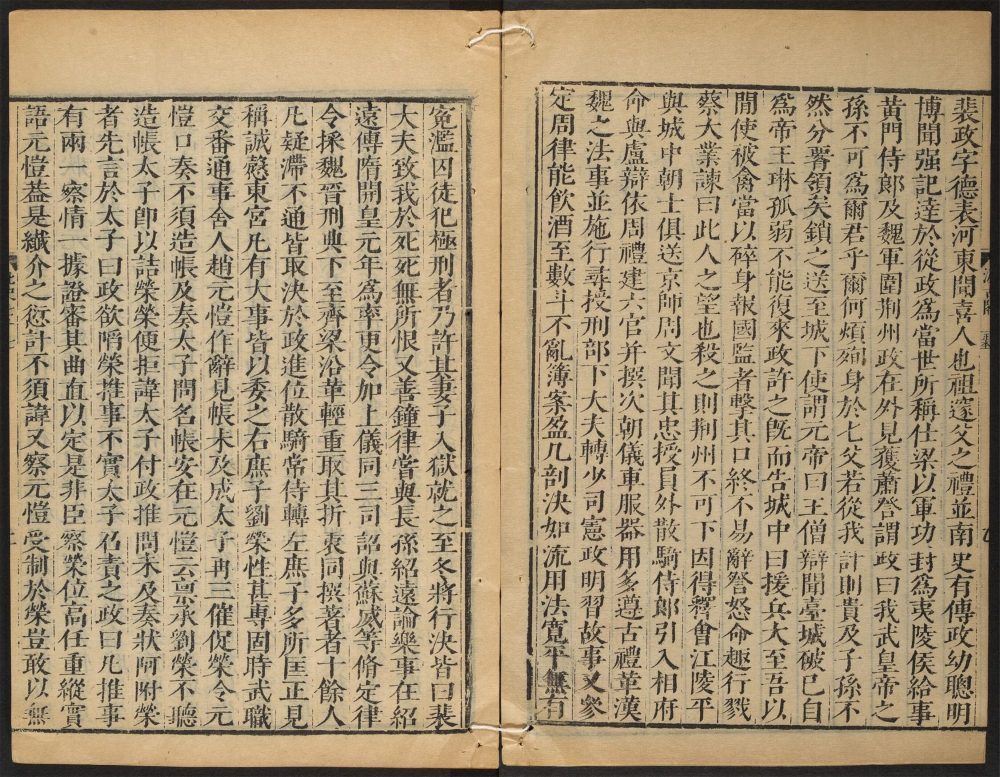 裴政字德表河東聞喜人也祖邃父之禮並南史有傳政幼聰明
博聞强記達於從政為當世所稱仕梁以軍功封為夷陵侯給事
黃門侍郎及魏軍圍荆州政在外見獲蕭詧謂政曰我武皇帝之
孫不可為爾君乎爾何煩殉身於七父若從我計則貴及子孫不
然分腰領矣鎖之送至城下使謂元帝曰王僧辯聞臺城破已自
為帝王琳孤弱不能復來政許之既而告城中曰援兵大至吾以
閒使被禽當以碎身報國監者擊其口終不易辭詧怒命趣行戮
蔡大業諫曰此人之望也殺之則荆州不可下因得釋會江陵平
與城中朝士俱送京師周文聞其忠授員外散騎侍郎引入相府
命與盧辯依周禮建六官并撰次朝儀車服器用多遵古禮革漢
魏之法事並施行尋授刑部下大夫轉少司憲政明習故事又參
定周律能飲酒至數斗不亂簿案盈几剖決如流用法寬平無有
寃濫囚徒犯極刑者乃許其妻子入獄就之至冬將行決皆曰裴
大夫致我於死死無所恨又善鐘律嘗與長孫紹遠論樂事在紹
遠傳隋開皇元年為率更令加上儀同三司詔與蘇威等脩定律
令採魏晉刑典下至齊梁沿革輕重取其折衷同撰著者十餘人
凡疑滯不通皆取決於政進位散騎常侍轉左庶子多所匡正見
稱誠慤東宮凡有大事皆以委之右庶子劉榮性甚專固時武職
交番通事舍人趙元愷作辭見帳未及成太子再三催促榮令元
愷口奏不須造帳及奏太子問名帳安在元愷云禀承劉榮不聽
造帳太子卽以詰榮榮便拒諱太子付政推問未及奏狀阿附榮
者先言於太子曰政欲䧟榮推事不實太子召責之政曰凡推事
有兩一察情一據證審其曲直以定是非臣察榮位高任重縱實
語元愷葢是纎介之愆計不須諱又察元愷受制於榮豈敢以無